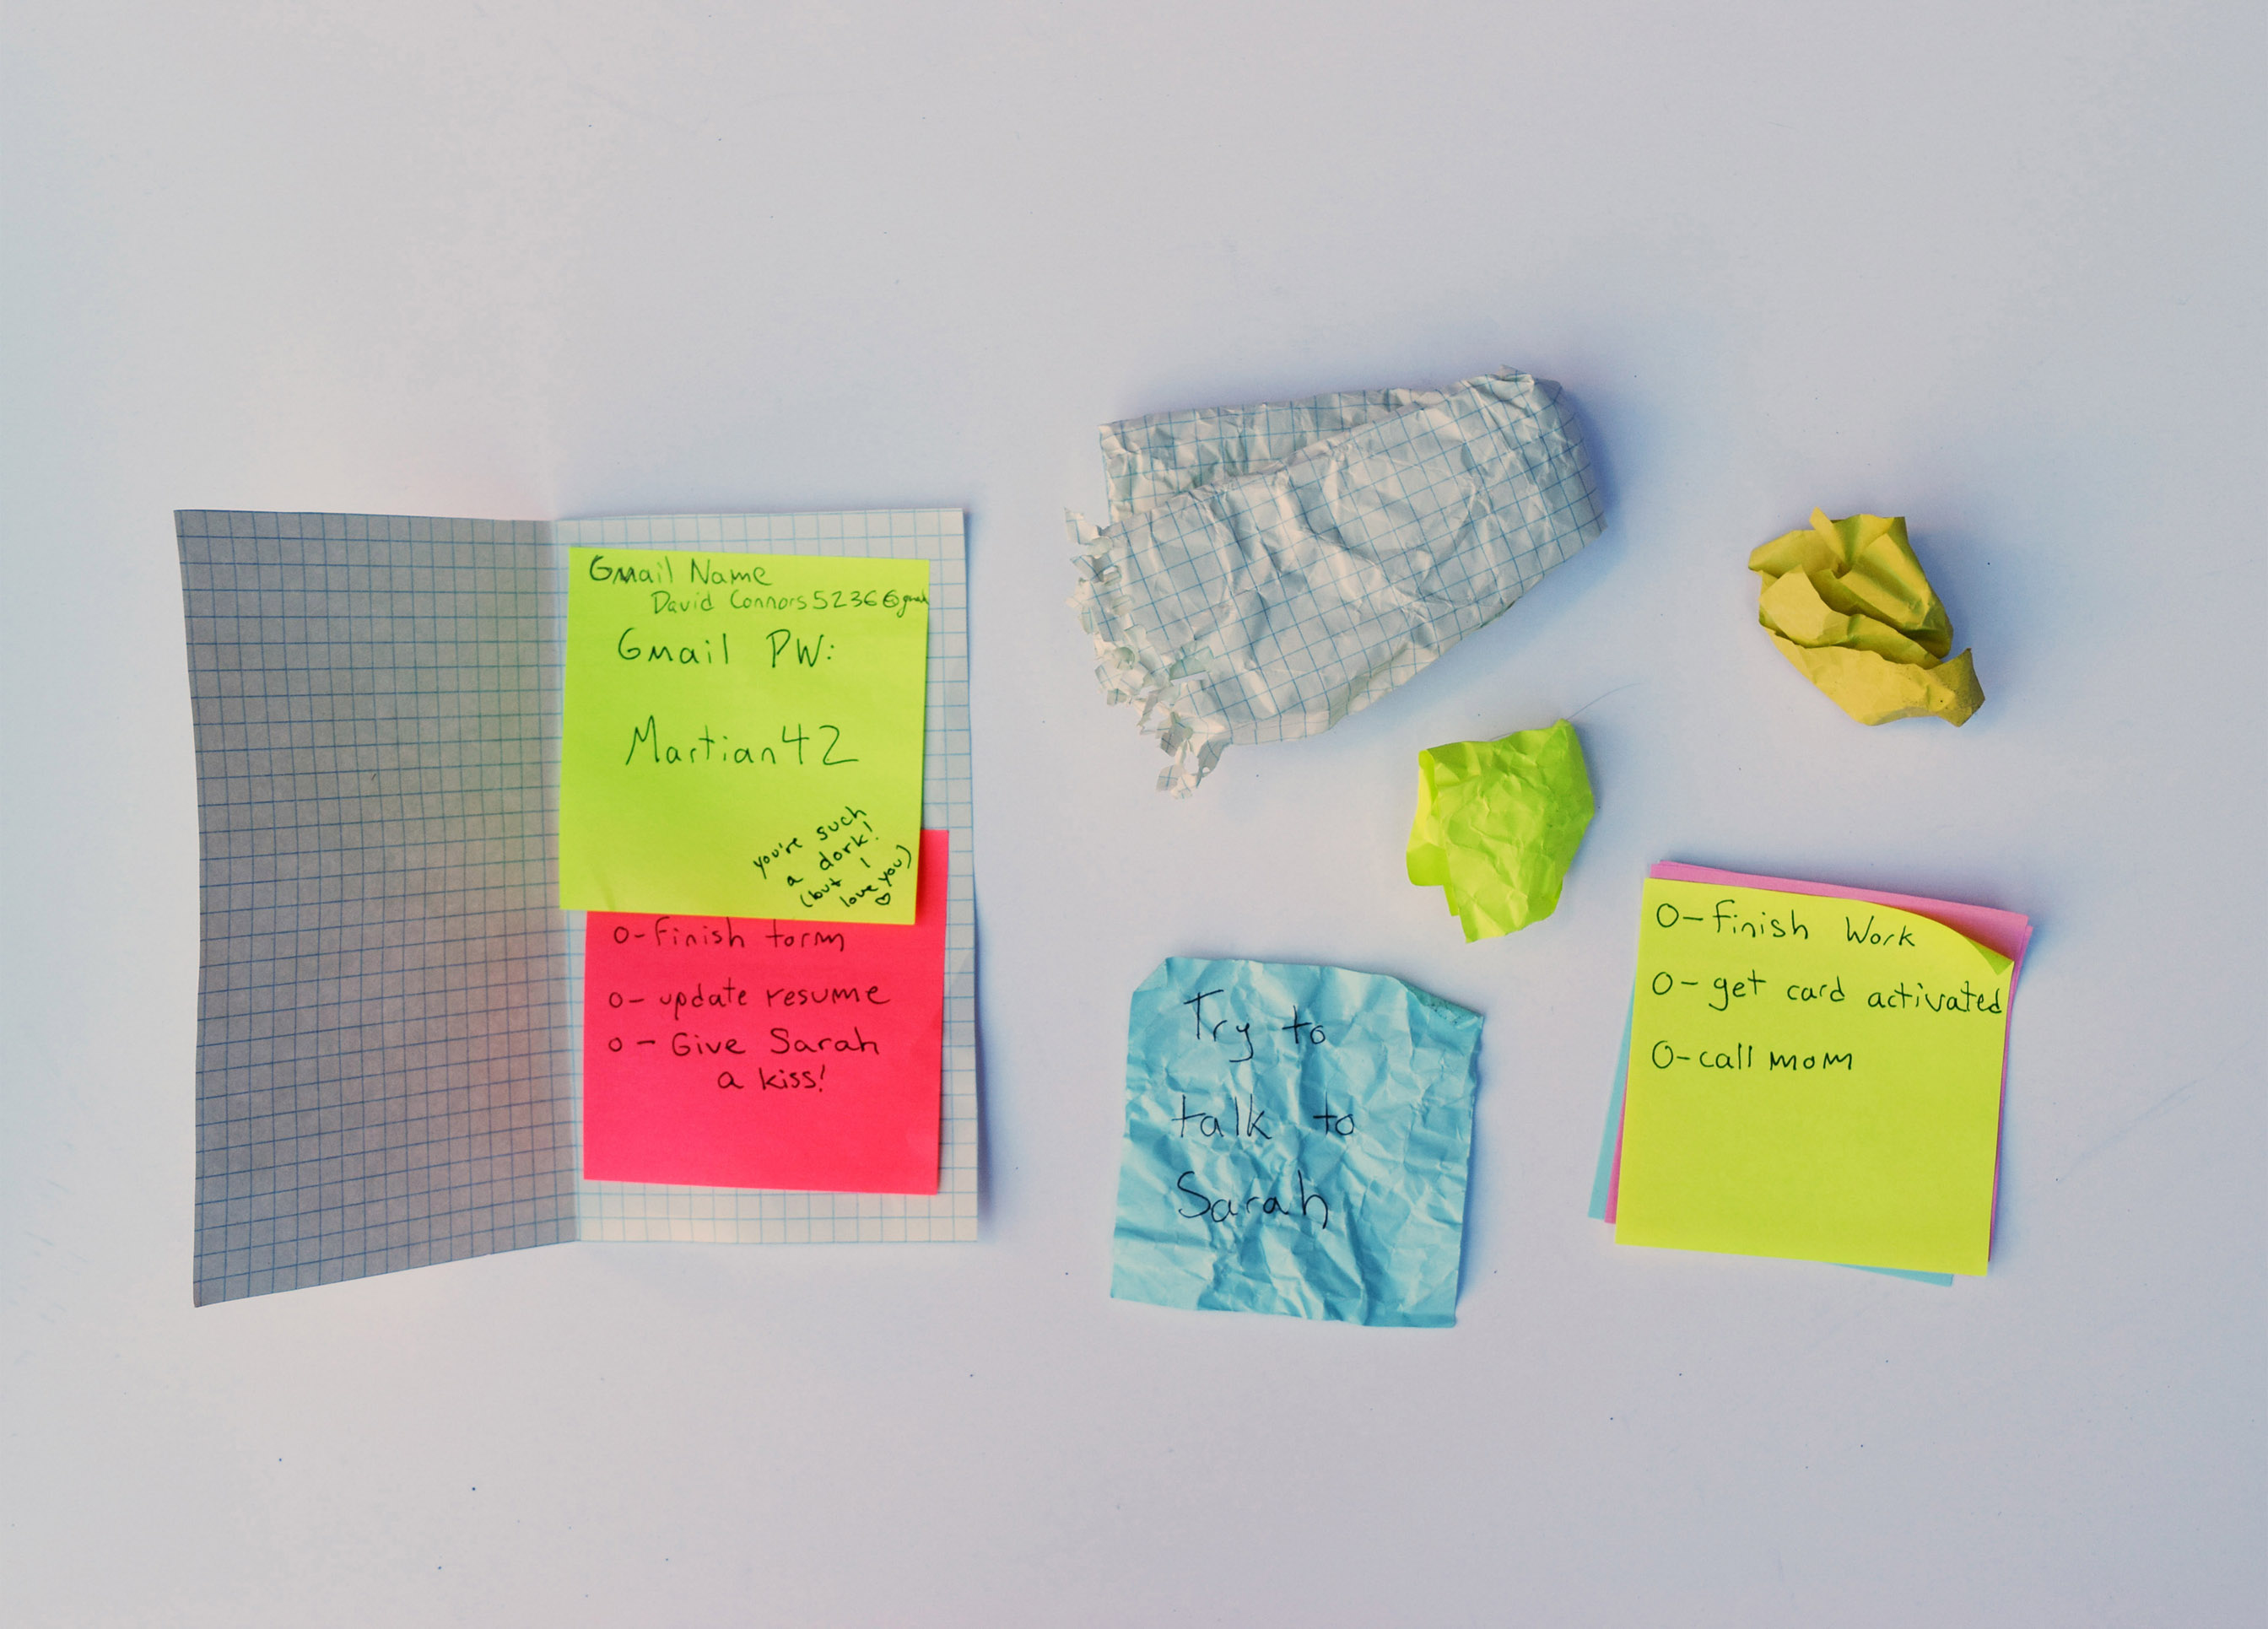 Gmail Name
David Connors5236@gmail
Gmail PW:
Martian42
you're such
a dork!
(but I
love you)
♡
O-Finish form
O-update resume
O-Give Sarah
a kiss!
Try to
talk to
Sarah
O-Finish Work
O-get card activated
O-call mom